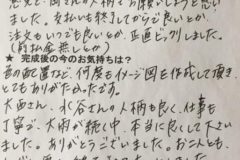 思って、岡さんの人柄でお願いしようと思い
ました。支払いも終了してからで良いとか、
注文もいつでも良いとか、正直ビックリしました。
(前払金無ししか)
★完成後の今のお気持ちは?
石の配置など、何度もイメージ図を作成して頂き、
とてもありがたかったです。
大西さん、水谷さんの人柄も良く、仕事も
丁寧で、大雨が続く中、本当に良くして下さい
ました。ありがとうございました。お二人とも、